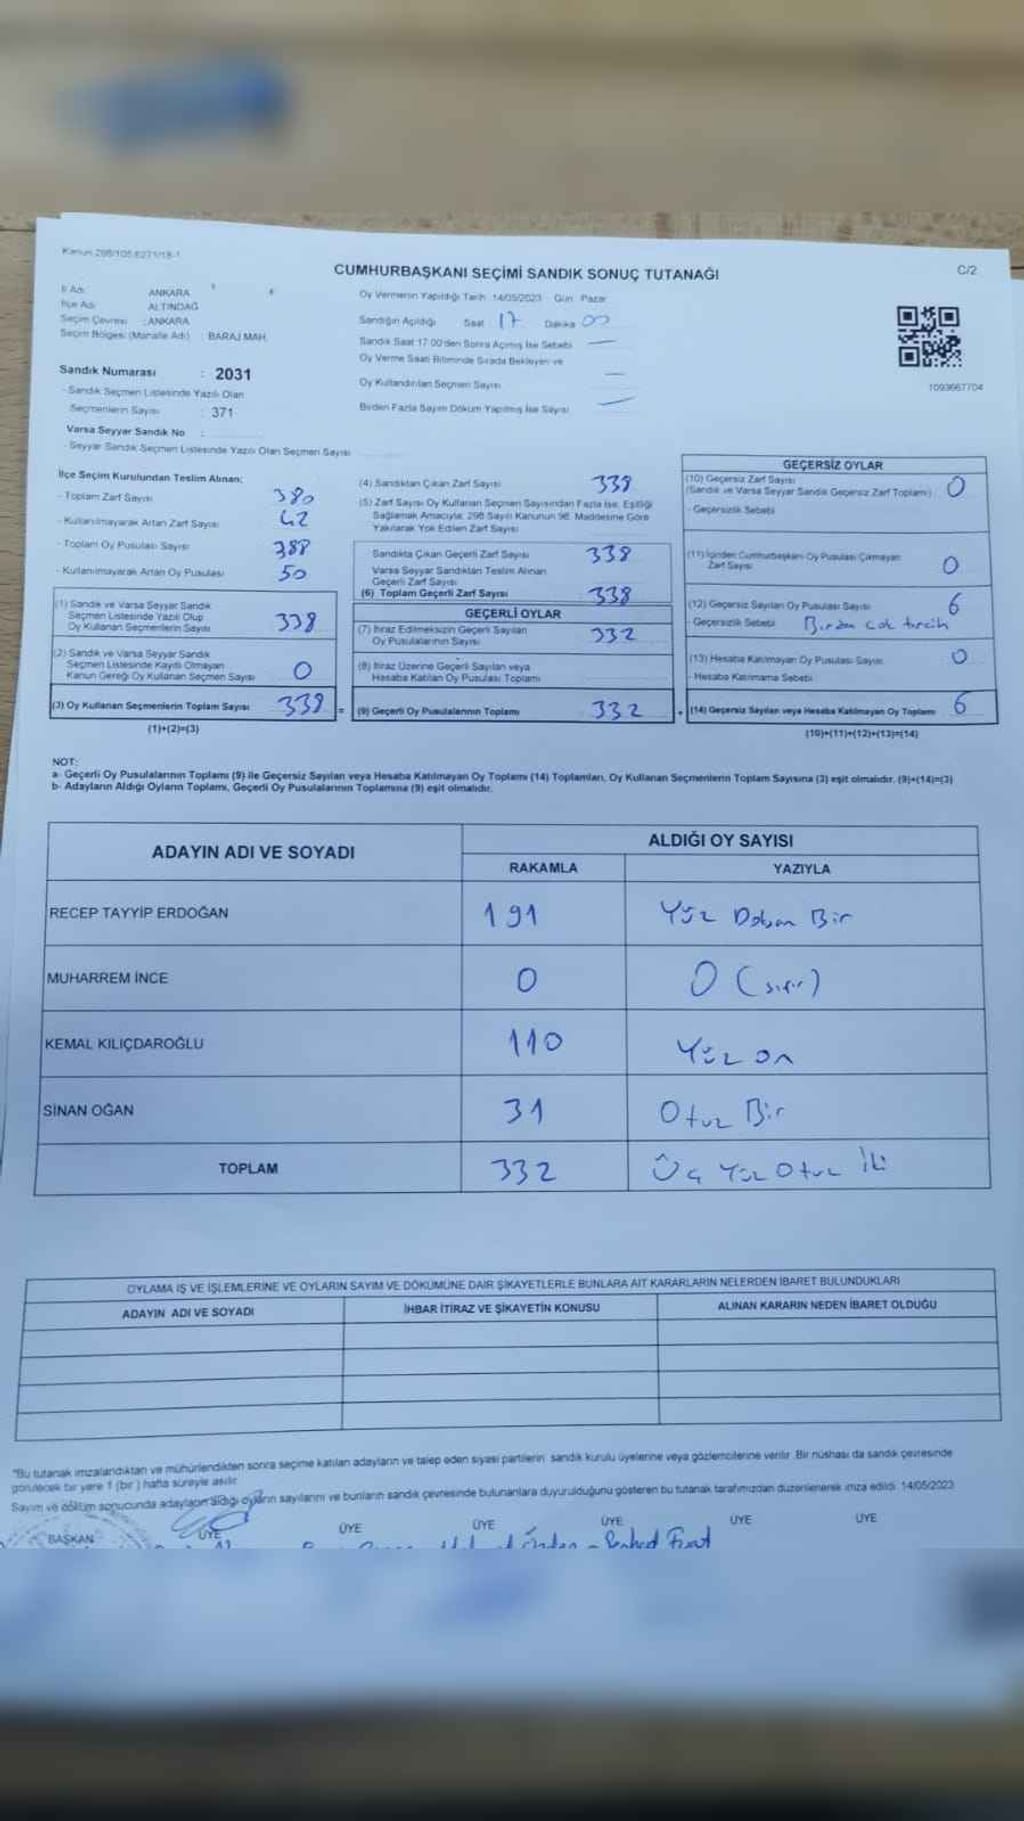 Kanun 298/105,6271/18-1
CUMHURBAŞKANI SEÇİMİ SANDIK SONUÇ TUTANAĞI
C/2
İl Adı : ANKARA
İlçe Adı : ALTINDAĞ
Seçim Çevresi : ANKARA
Seçim Bölgesi (Mahalle Adı) : BARAJ MAH.
Sandık Numarası : 2031
- Sandık Seçmen Listesinde Yazılı Olan
Seçmenlerin Sayısı : 371
Varsa Seyyar Sandık No :
- Seyyar Sandık Seçmen Listesinde Yazılı Olan Seçmen Sayısı
Oy Vermenin Yapıldığı Tarih: 14/05/2023 Gün: Pazar
Sandığın Açıldığı Saat 17 Dakika 00
Sandık Saat 17:00'den Sonra Açılmış İse Sebebi —
Oy Verme Saati Bitiminde Sırada Bekleyen ve
Oy Kullandırılan Seçmen Sayısı —
Birden Fazla Sayım Döküm Yapılmış İse Sayısı —
1093667704
İlçe Seçim Kurulundan Teslim Alınan:
- Toplam Zarf Sayısı 380
- Kullanılmayarak Artan Zarf Sayısı 42
- Toplam Oy Pusulası Sayısı 388
- Kullanılmayarak Artan Oy Pusulası 50
(1) Sandık ve Varsa Seyyar Sandık
Seçmen Listesinde Yazılı Olup
Oy Kullanan Seçmenlerin Sayısı 338
(2) Sandık ve Varsa Seyyar Sandık
Seçmen Listesinde Kayıtlı Olmayan
Kanun Gereği Oy Kullanan Seçmen Sayısı 0
(3) Oy Kullanan Seçmenlerin Toplam Sayısı 338 =
(1)+(2)=(3)
(4) Sandıktan Çıkan Zarf Sayısı 338
(5) Zarf Sayısı Oy Kullanan Seçmen Sayısından Fazla İse, Eşitliği
Sağlamak Amacıyla; 298 Sayılı Kanunun 98. Maddesine Göre
Yakılarak Yok Edilen Zarf Sayısı
Sandıkta Çıkan Geçerli Zarf Sayısı 338
Varsa Seyyar Sandıktan Teslim Alınan
Geçerli Zarf Sayısı
(6) Toplam Geçerli Zarf Sayısı 338
GEÇERLİ OYLAR
(7) İtiraz Edilmeksizin Geçerli Sayılan
Oy Pusulalarının Sayısı 332
(8) İtiraz Üzerine Geçerli Sayılan veya
Hesaba Katılan Oy Pusulası Toplamı
(9) Geçerli Oy Pusulalarının Toplamı 332 +
GEÇERSİZ OYLAR
(10) Geçersiz Zarf Sayısı
(Sandık ve Varsa Seyyar Sandık Geçersiz Zarf Toplamı) 0
- Geçersizlik Sebebi
(11) İçinden Cumhurbaşkanı Oy Pusulası Çıkmayan
Zarf Sayısı 0
(12) Geçersiz Sayılan Oy Pusulası Sayısı 6
- Geçersizlik Sebebi Birden çok tercih
(13) Hesaba Katılmayan Oy Pusulası Sayısı 0
- Hesaba Katılmama Sebebi
(14) Geçersiz Sayılan veya Hesaba Katılmayan Oy Toplamı 6
(10)+(11)+(12)+(13)=(14)
NOT:
a- Geçerli Oy Pusulalarının Toplamı (9) ile Geçersiz Sayılan veya Hesaba Katılmayan Oy Toplamı (14) Toplamları, Oy Kullanan Seçmenlerin Toplam Sayısına (3) eşit olmalıdır. (9)+(14)=(3)
b- Adayların Aldığı Oyların Toplamı, Geçerli Oy Pusulalarının Toplamına (9) eşit olmalıdır.
ADAYIN ADI VE SOYADI
ALDIĞI OY SAYISI
RAKAMLA YAZIYLA
RECEP TAYYİP ERDOĞAN 191 Yüz Doksan Bir
MUHARREM İNCE 0 0 (sıfır)
KEMAL KILIÇDAROĞLU 110 Yüz on
SİNAN OĞAN 31 Otuz Bir
TOPLAM 332 Üç Yüz Otuz İki
OYLAMA İŞ VE İŞLEMLERİNE VE OYLARIN SAYIM VE DÖKÜMÜNE DAİR ŞİKAYETLERLE BUNLARA AİT KARARLARIN NELERDEN İBARET BULUNDUKLARI
ADAYIN ADI VE SOYADI İHBAR İTİRAZ VE ŞİKAYETİN KONUSU ALINAN KARARIN NEDEN İBARET OLDUĞU
"Bu tutanak imzalandıktan ve mühürlendikten sonra seçime katılan adayların ve talep eden siyasi partilerin sandık kurulu üyelerine veya gözlemcilerine verilir. Bir nüshası da sandık çevresinde
görülecek bir yere 1 (bir) hafta süreyle asılır.
Sayım ve döküm sonucunda adayların aldığı oyların sayılarını ve bunların sandık çevresinde bulunanlara duyurulduğunu gösteren bu tutanak tarafımızdan düzenlenerek imza edildi. 14/05/2023
BAŞKAN ÜYE ÜYE ÜYE ÜYE ÜYE ÜYE
Fırat